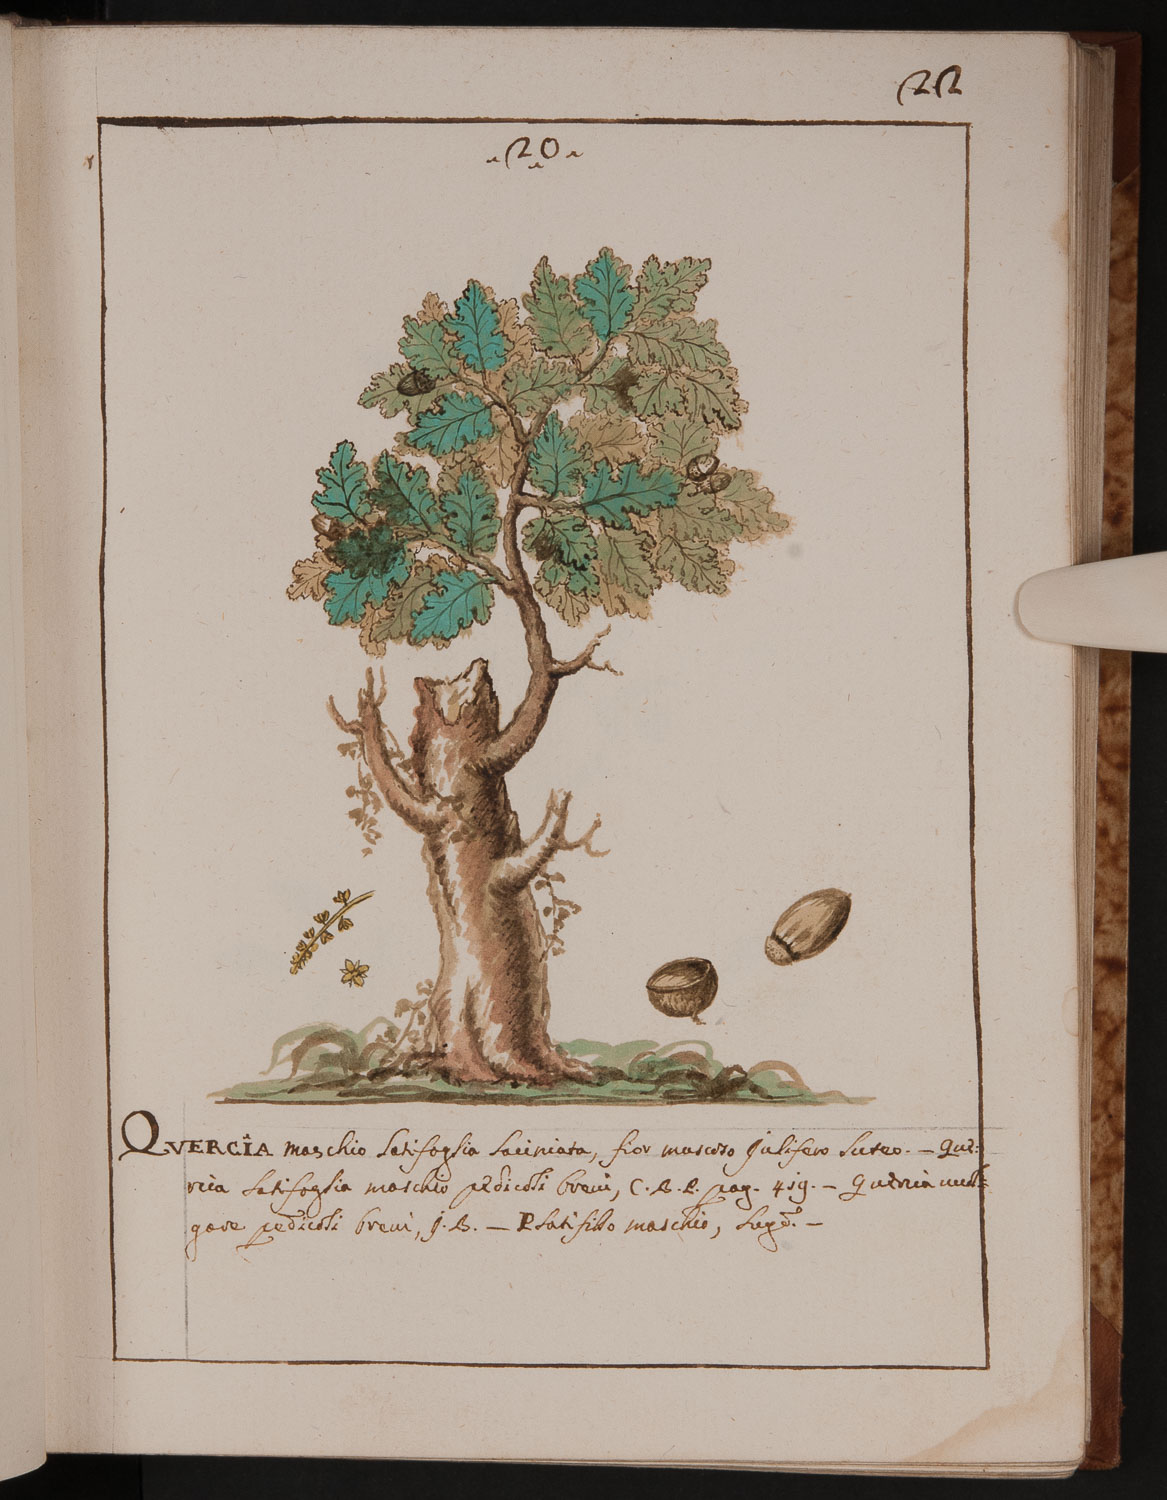 22
.20.
QVERCÎA maschio latifoglia laciniata, fior muscoso julifero luteo. — Quer:
cia latifoglia maschio pedicoli brevi, C. B. P. pag. 419. — Quercia vul=
gare pedicoli brevi, J. B. — Platifillo maschio, Lugd. —